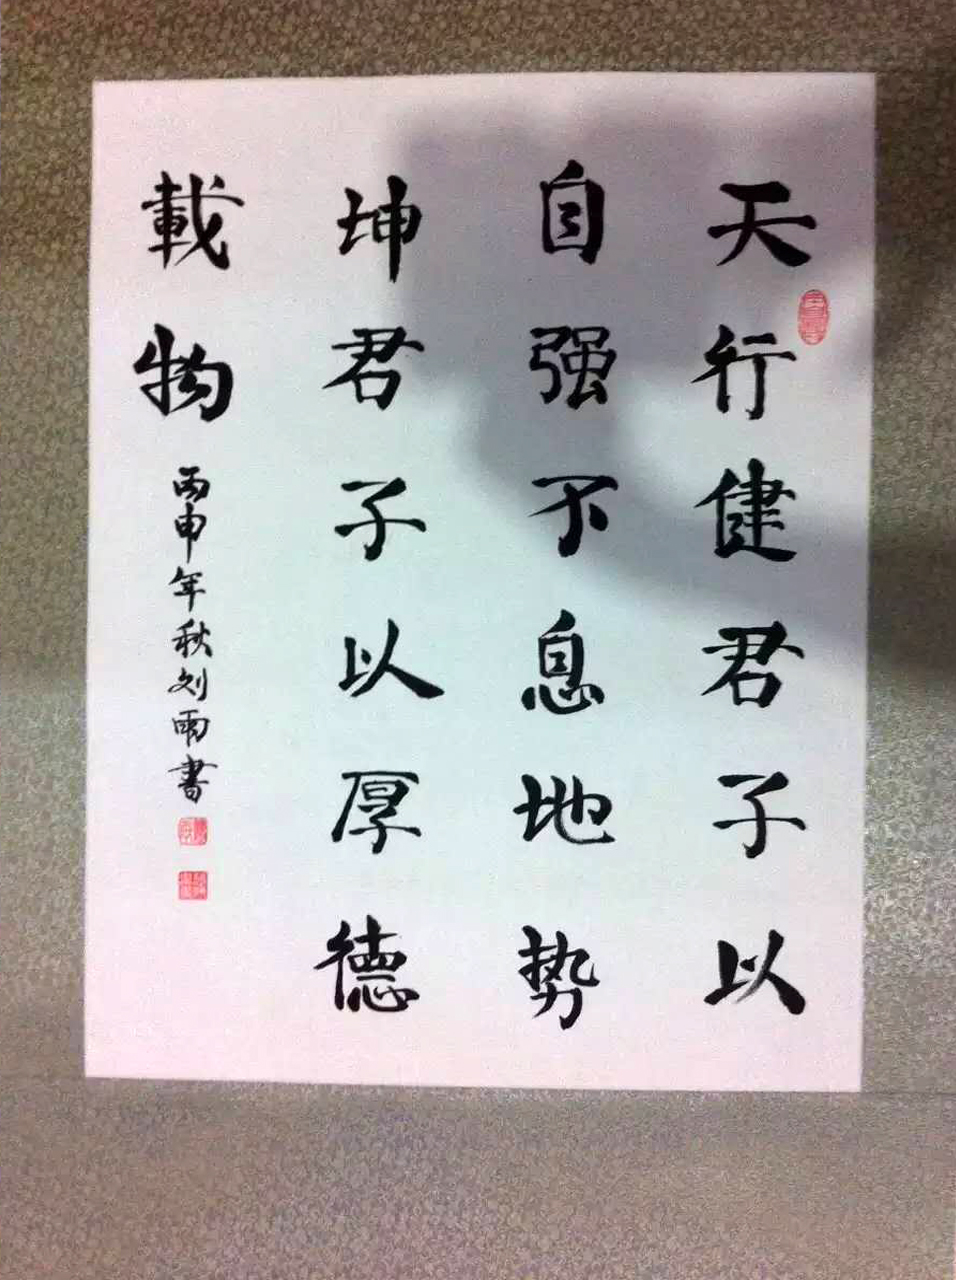 天行健君子以
自强不息地势
坤君子以厚德
載物
丙申年秋刘雨書